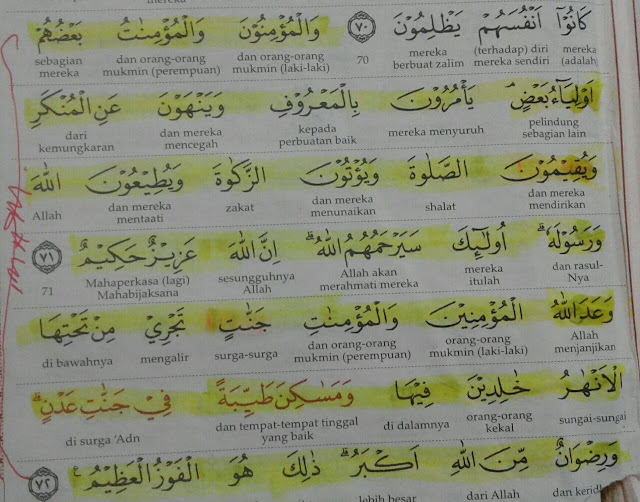 mereka
كَانُوْٓا اَنْفُسَهُمْ يَظْلِمُوْنَ ﴿٧٠﴾ وَالْمُؤْمِنُوْنَ وَالْمُؤْمِنٰتُ بَعْضُهُمْ
mereka
(adalah)
(terhadap) diri
mereka sendiri
mereka
berbuat zalim
70
dan orang-orang
mukmin (laki-laki)
dan orang-orang
mukmin (perempuan)
sebagian
mereka
اَوْلِيَاۤءُ بَعْضٍۘ يَأْمُرُوْنَ بِالْمَعْرُوْفِ وَيَنْهَوْنَ عَنِ الْمُنْكَرِ
pelindung
sebagian lain
mereka menyuruh
kepada
perbuatan baik
dan mereka
mencegah
dari
kemungkaran
وَيُقِيْمُوْنَ الصَّلٰوةَ وَيُؤْتُوْنَ الزَّكٰوةَ وَيُطِيْعُوْنَ اللّٰهَ
dan mereka
mendirikan
shalat
dan mereka
menunaikan
zakat
dan mereka
mentaati
Allah
وَرَسُوْلَهٗۗ اُولٰۤىِٕكَ سَيَرْحَمُهُمُ اللّٰهُۗ اِنَّ اللّٰهَ عَزِيْزٌ حَكِيْمٌ ﴿٧١﴾
dan rasul-
Nya
mereka
itulah
Allah akan
merahmati mereka
sesungguhnya
Allah
Mahaperkasa (lagi)
Mahabijaksana
71
وَعَدَ اللّٰهُ الْمُؤْمِنِيْنَ وَالْمُؤْمِنٰتِ جَنّٰتٍ تَجْرِيْ مِنْ تَحْتِهَا
Allah
menjanjikan
orang-orang
mukmin (laki-laki)
dan orang-orang
mukmin (perempuan)
surga-surga
mengalir
di bawahnya
الْاَنْهٰرُ خٰلِدِيْنَ فِيْهَا وَمَسٰكِنَ طَيِّبَةً فِيْ جَنّٰتِ عَدْنٍۗ
sungai-sungai
orang-orang
kekal
di dalamnya
dan tempat-tempat tinggal
yang baik
di surga 'Adn
وَرِضْوَانٌ مِّنَ اللّٰهِ اَكْبَرُۗ ذٰلِكَ هُوَ الْفَوْزُ الْعَظِيْمُ ﴿٧٢﴾
dari Allah
lebih besar